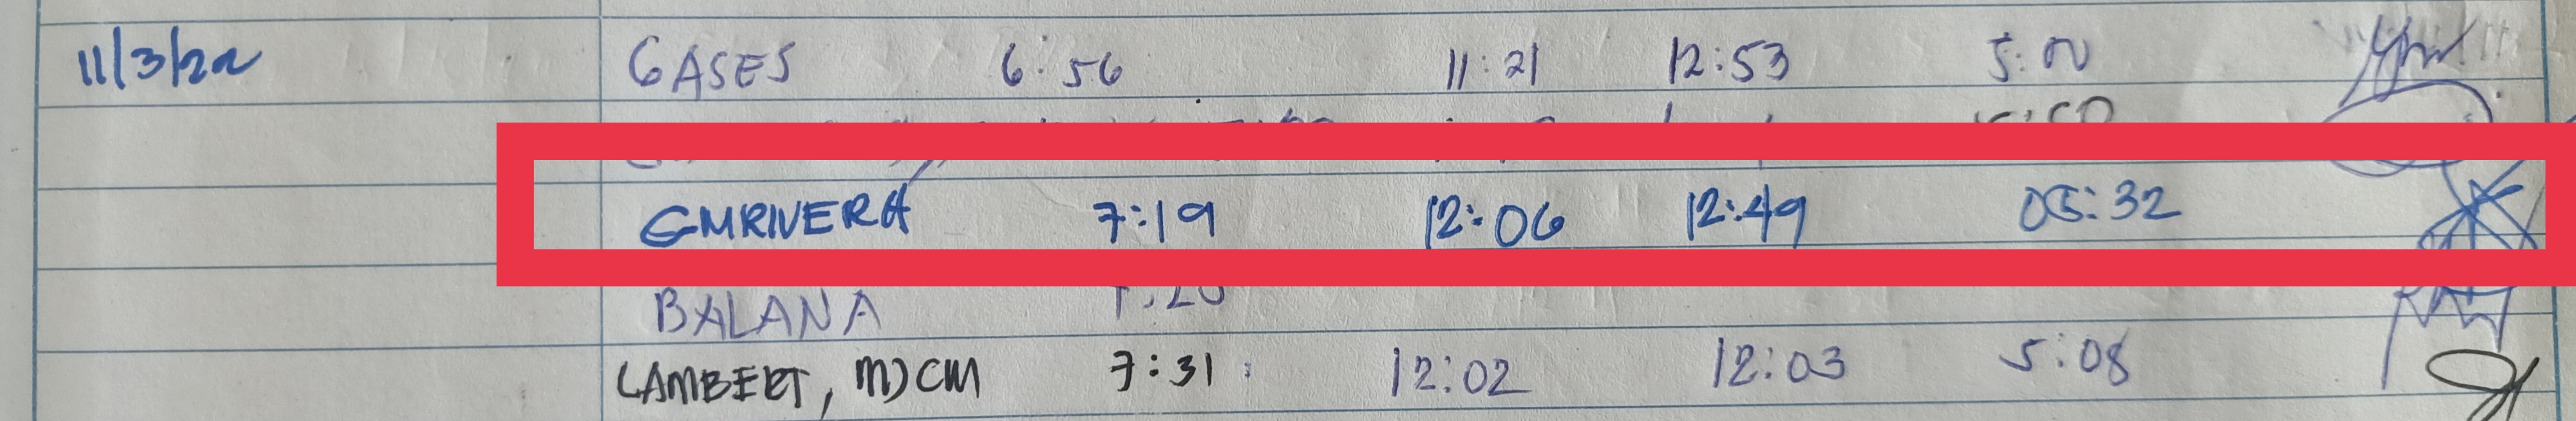 11/3/22 GASES 6:56 11:21 12:53 5:00
GMRIVERA 7:19 12:06 12:49 05:32
BALANA
LAMBERT, MJCM 7:31 12:02 12:03 5:08